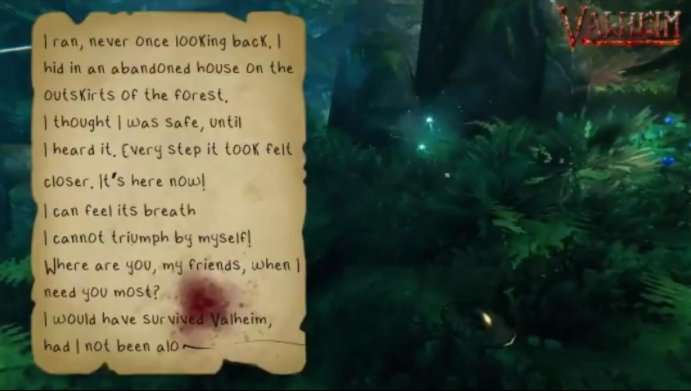 VALHEIM
I ran, never once looking back. I
hid in an abandoned house on the
outskirts of the forest.
I thought I was safe, until
I heard it. Every step it took felt
closer. It's here now!
I can feel its breath
I cannot triumph by myself!
Where are you, my friends, when I
need you most?
I would have survived Valheim,
had I not been alo